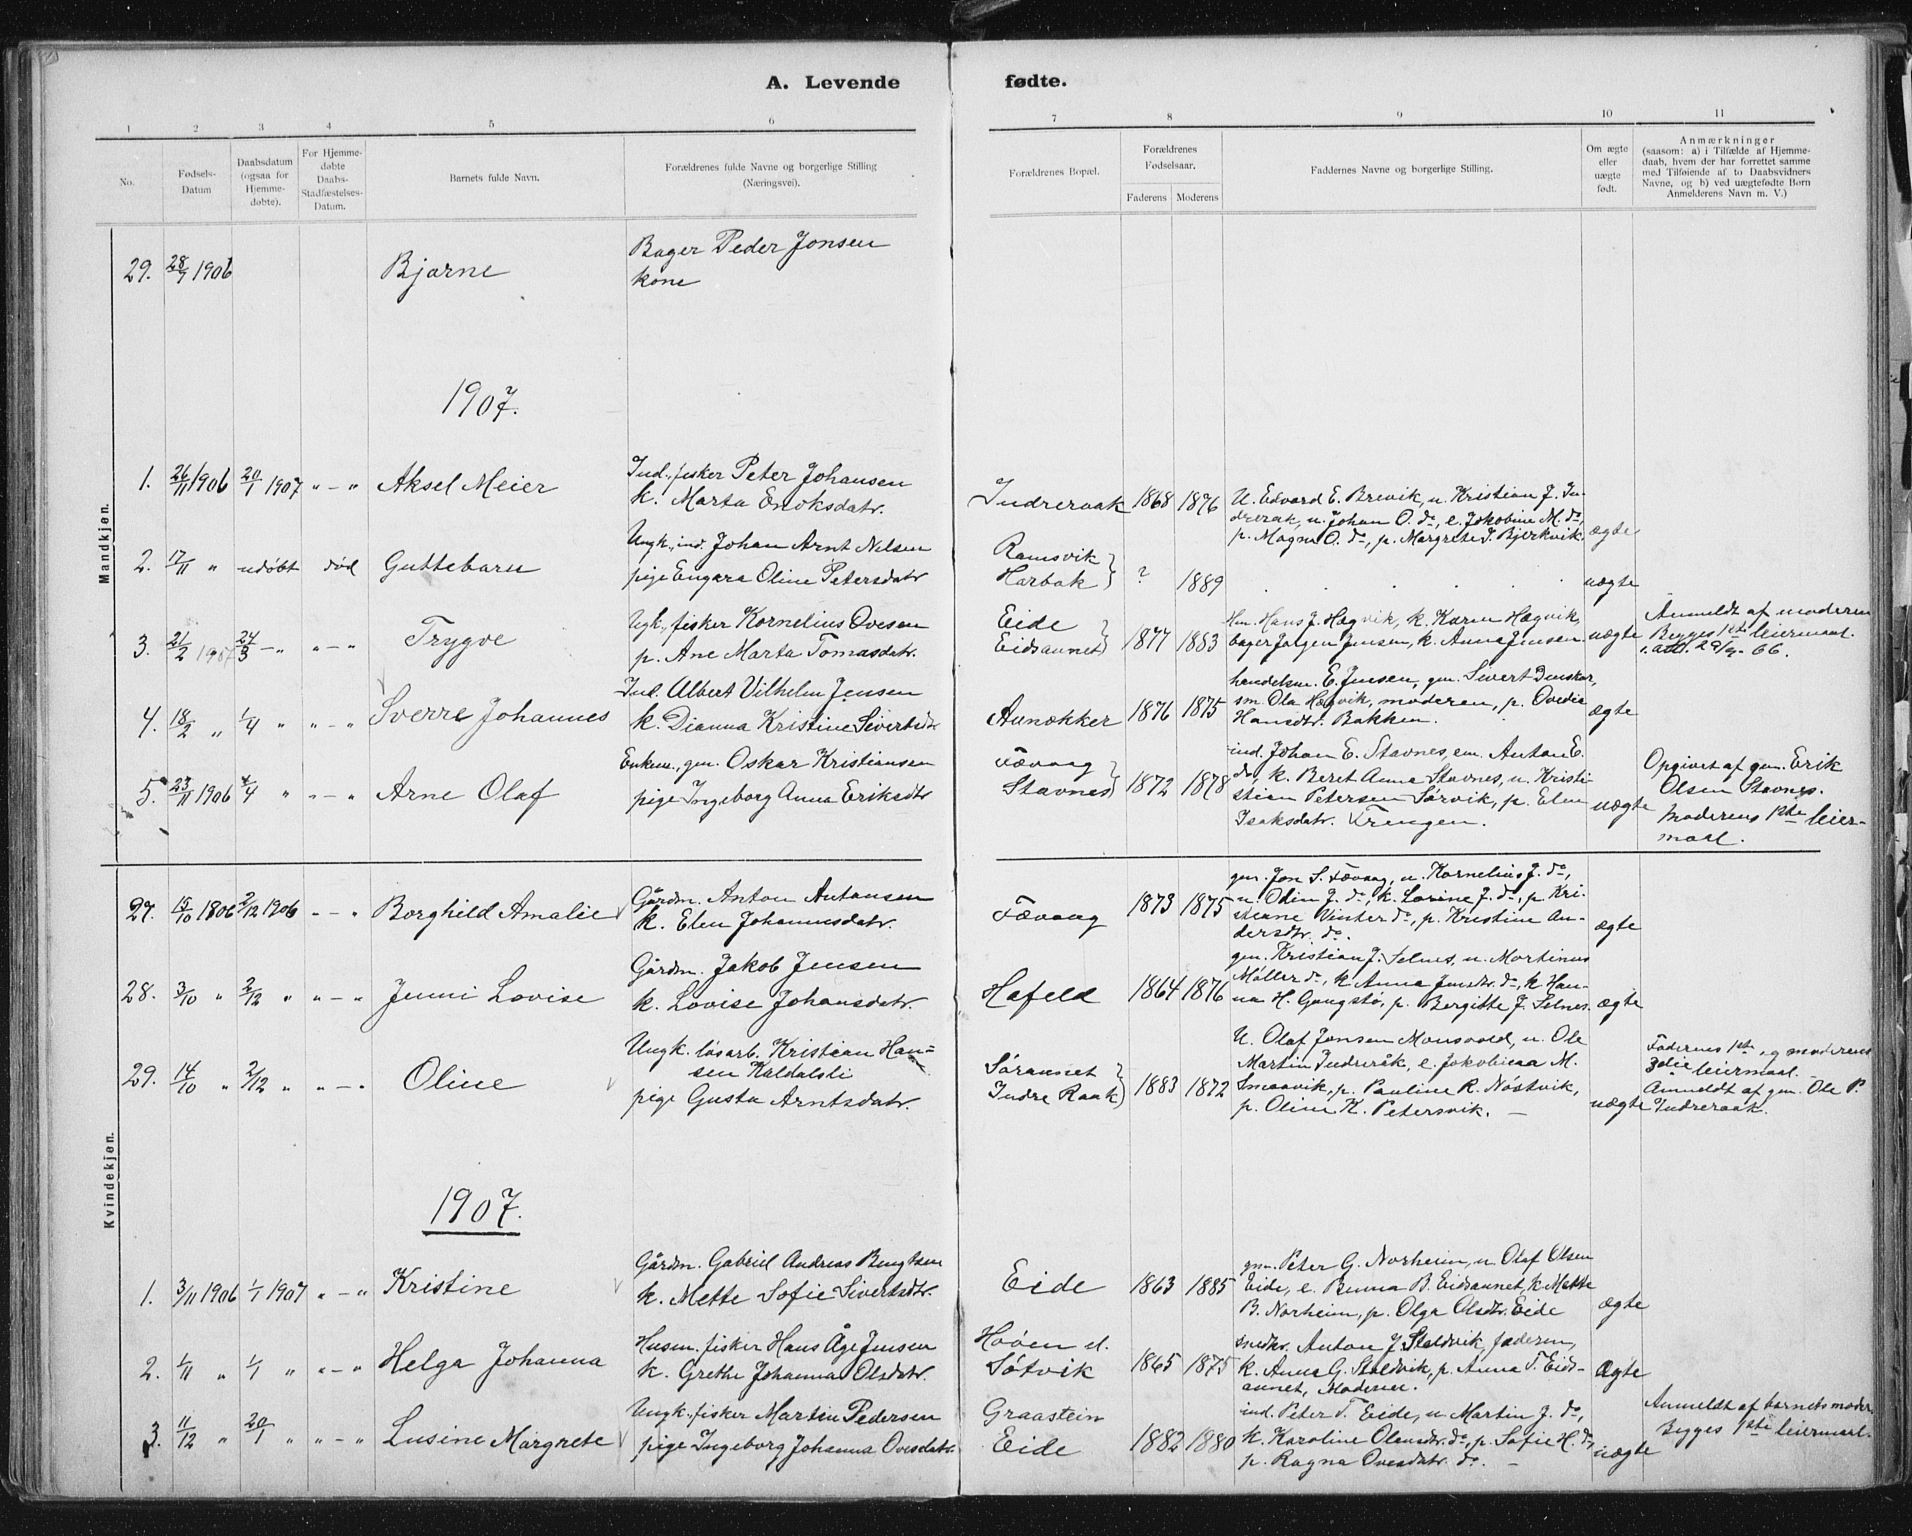 A. Levende fødte.
1 2 3 4 5 6 7 8 9 10 11
No.
Fødsels-
Datum
Daabsdatum
(ogsaa for
Hjemme-
døbte).
For Hjemme-
døbte
Daabs-
Stadfæstelses-
Datum.
Barnets fulde Navn.
Forældrenes fulde Navne og borgerlige Stilling
(Næringsvei).
Forældrenes Bopæl.
Forældrenes
Fødselsaar.
Faderens Moderens
Faddernes Navne og borgerlige Stilling.
Om ægte
eller
uægte
født.
Anmærkninger
(saasom: a) i Tilfælde af Hjemme-
daab, hvem der har forrettet samme
med Tilføiende af to Daabsvidners
Navne, og b) ved uægtefødte Børn
Anmelderens Navn m. V.)
Mandkjøn.
29. 28/7 1906 Bjarne
Bager Peder Jonsen
kone
1907.
1. 26/11 1906 20/1 1907 " - " Aksel Meier
Ind., fisker Peter Johansen
k. Marta Enoksdatr.
Indreraak 1868 1876
U. Edvard E. Brevik, u. Kristian J. In-
dreraak, u. Johan O. do, e. Jakobine M. do,
p. Magna O. do, p. Margrete J. Bjerkvik.
ægte
2. 17/11 " udøbt død Guttebarn
Ungk., ind. Johan Arnt Nilsen
pige Engara Oline Petersdatr
Ramsvik
Harbak
? 1889
uægte
3. 21/2 1907 24/3 - " " - " Trygve
Ugk., fisker Kornelius Ovesen
p. Ane Marta Tomasdatr.
Eide
Eidsaunet
1877 1883
Hm. Hans J. Hægvik, k. Karen Hægvik,
bager Jørgen Jensen, k. Anna Jensen
uægte
Anmeldt af moderen
Begges 1ste leiermaal.
. att. 29/9- 66.
4. 18/2 " 1/4 " " - " Sverre Johannes
Ind. Albert Vilhelm Jensen
k. Dianna Kristine Sivertsdtr
Aunækker 1876 1875
handelsm. E. Jensen, gm. Sivert Denskar,
sm. Ola Hægvik, moderen, p. Ovedie
Hansdtr. Bakken.
ægte
5. 23/11 1906 4/4 " " - " Arne Olaf
Enkem., gm. Oskar Kristiansen
pige Ingeborg Anna Eriksdtr
Fævaag
Stavnes
1872 1878
ind. Johan E. Stavnes, em. Anton E.
do, k. Beret Anna Stavnes, u. Kristi-
stian Petersen Sørvik, p. Elen
Isaksdatr. Krengen.
uægte
Opgivet af gm. Erik
Olsen Stavnes.
Moderens 1ste leier-
maal.
Kvindekjøn.
27. 15/10 1806 2/12 1906 " - " Borghild Amalie
Gårdm. Anton Antonsen
k. Elen Johannesdatr.
Fævaag 1873 1875
gm. Jon S. Fævaag, u. Kornelius J. do,
u. Odin J. do, k. Lorine J. do, p. Kri-
stiane Vinter do, p. Kristine An-
dersdtr. do.
ægte
28. 3/10 " 2/12 " " - " Jenni Lovise
Gårdm. Jakob Jensen
k. Lovise Johansdatr.
Hafeld 1864 1876
gm. Kristian J. Selnes, u. Martinus
Møller do, k. Anna Jensdtr. do, k. Han-
na H. Gangstø, p. Bergitte J. Selnes.
ægte
29. 14/10 " 2/12 " " - " Oline
Ungk. løsarb. Kristian Han-
sen Kaldalsli
pige Gusta Arntsdatr.
Søraunet
Indre Raak
1883 1872
U. Olaf Jonsen Monsvold, u. Ole
Martin Indreråk, e. Jakobinaa M.
Smaavik, p. Pauline R. Nøstvik,
p. Oline K. Petersvik. -
uægte
Faderens 1ste, og moderens
2die leiermaal.
Anmeldt af gm. Ole P.
Indreraak.
1907.
1. 3/11 1906 1/1 1907 " - " Kristine
Gårdm. Gabriel Andreas Bengtsen
k. Mette Sofie Sivertsdtr.
Eide 1863 1885
gm. Peter G. Norheim, u. Olaf Olsen
Eide, e. Bunna B. Eidsaunet, k. Mette
B. Norheim, p. Olga Olsdtr. Eide
ægte
2. 1/11 " 1/1 " " - " Helga Johanna
Husm. fisker Hans Åge Jensen
k. Grethe Johanna Olsdatr.
Høøen u.
Søtvik
1865 1875
snedkr. Anton J. Staldvik, faderen,
k. Anna G. Staldvik, p. Anna T. Eids-
aunet, Moderen.
Ægte
3. 11/12 " 20/1 " " - " Lusine Margrete
Ungk., fisker Martin Pedersen
pige Ingeborg Johanna Ovesdatr
Graastein
Eide
1882 1880
ind. Peter T. Eide, u. Martin J. do,
k. Karoline Olensdtr. do, p. Sofie H. do,
p. Ragna Ovesdatr. do. -
uægte
Anmeldt af barnets moder
Begges 1ste leiermaal.